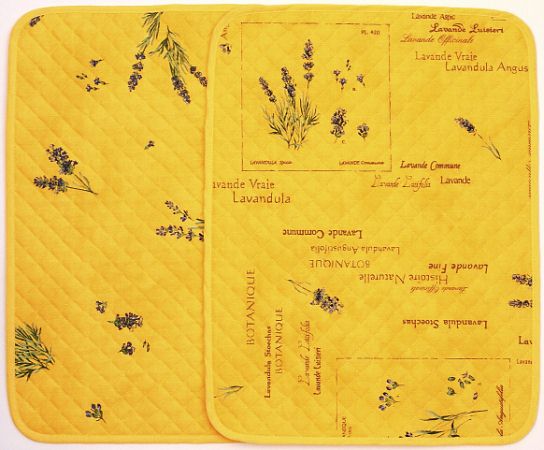 Lavande Aspic
Lavande Luisieri
Lavande Officinale
Lavande Vraie
Lavandula Angus
PL. 420
LAVANDULA Spica
LAVANDE Commune
Lavande Commune
Lavande Latifolia
Lavande
avande Vraie
Lavandula
Lavande Commune
Lavandula Angustifolia
BOTANIQUE
Histoire Naturelle
Lavande Officinale
Lavande Fine
Lavandula Stoechas
BOTANIQUE
Lavandula Stoechas
BOTANIQUE
Lavande Latifolia
Lavande Luisieri
Lava
BOTANIQUE
la Angustifolia